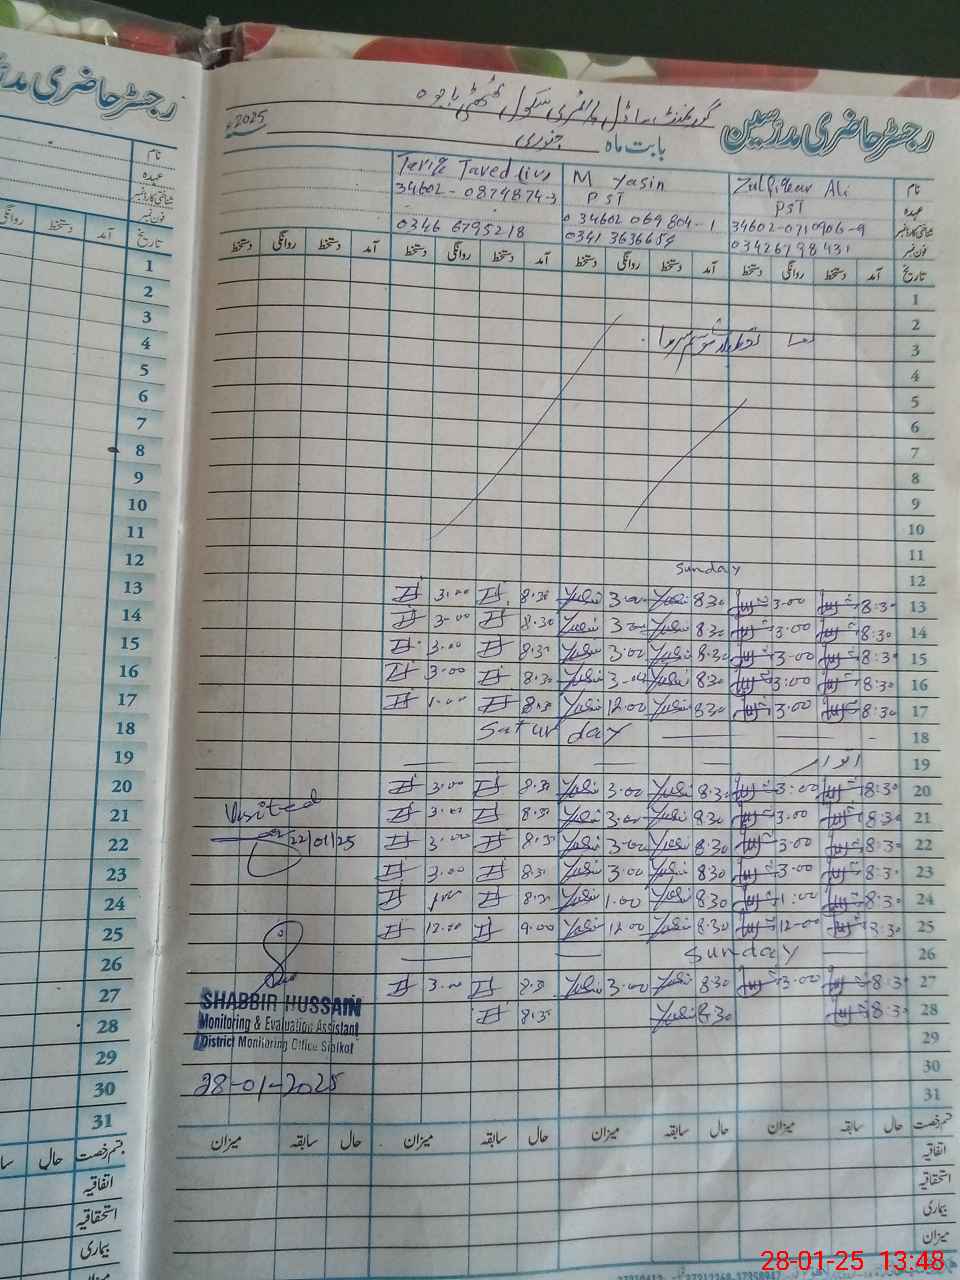 رجسٹر حاضری مدرسین
گورنمنٹ ماڈل پرائمری سکول ٹھٹھی باجوہ
بابت ماہ جنوری 2025ء
نام Zulfiqar Ali M Yasin Tariq Javed
عہدہ PST PST
شناختی کارڈ نمبر 34602-0710906-9 34602 069804-1 34602-0874874-3
فون نمبر 03426798431 0341 3636654 0346 6795218
تاریخ آمد دستخط روانگی دستخط آمد دستخط روانگی دستخط آمد دستخط روانگی دستخط آمد دستخط روانگی دستخط
1
2
3 تعطیلات موسم سرما
4
5
6
7
8
9
10
11
12 Sunday
13 8:30 3-00 8:30 3-00 8.30 3.00
14 8:30 3.00 8:30 3.00 8.30 3.00
15 8:30 3-00 8.30 3.00 8.30 3.00
16 8:30 3:00 8:30 3-00 8.30 3.00
17 8:30 3.00 8:30 12.00 8.30 1.00
18 Saturday
19 اتوار
20 8:30 3:00 8.30 3.00 8.30 3.00
21 8:30 3.00 8:30 3.00 8.30 3.00
22 8:30 3.00 8.30 3.00 8.30 3.00
23 8:30 3.00 8:30 3.00 8.30 3.00
24 8:30 1:00 8:30 1.00 8.30 1.00
25 8:30 12-00 8.30 12.00 9.00 12.00
26 Sunday
27 8:30 3.00 8:30 3.00 8.30 3.00
28 8:30 8:30 8.30
29
30
31
قسم رخصت حال سابقہ میزان حال سابقہ میزان حال سابقہ میزان حال سابقہ میزان
اتفاقیہ
استحقاقیہ
بیماری
میزان
Visited
22/01/25
SHABBIR HUSSAIN
Monitoring & Evaluation Assistant
District Monitoring Office Sialkot
28-01-2025
رجسٹر حاضری
نام
عہدہ
شناختی کارڈ نمبر
فون نمبر
تاریخ آمد دستخط روانگی
1
2
3
4
5
6
7
8
9
10
11
12
13
14
15
16
17
18
19
20
21
22
23
24
25
26
27
28
29
30
31
قسم رخصت حال
اتفاقیہ
استحقاقیہ
بیماری
میزان
28-01-25 13:48